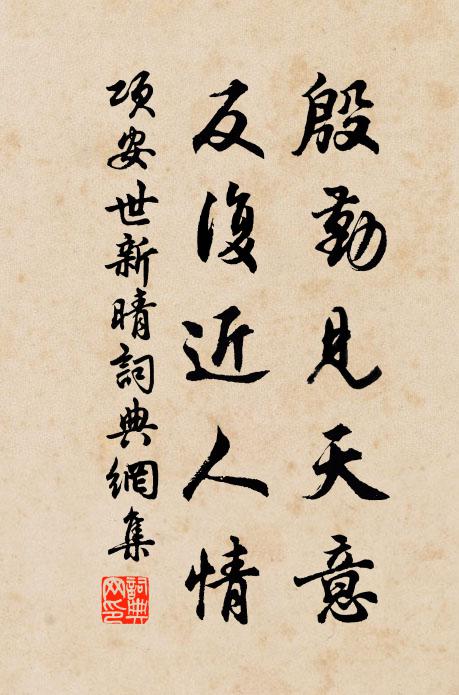 殷勤見天意
反復近人情
項安世新晴詞典網集
詞典
网印